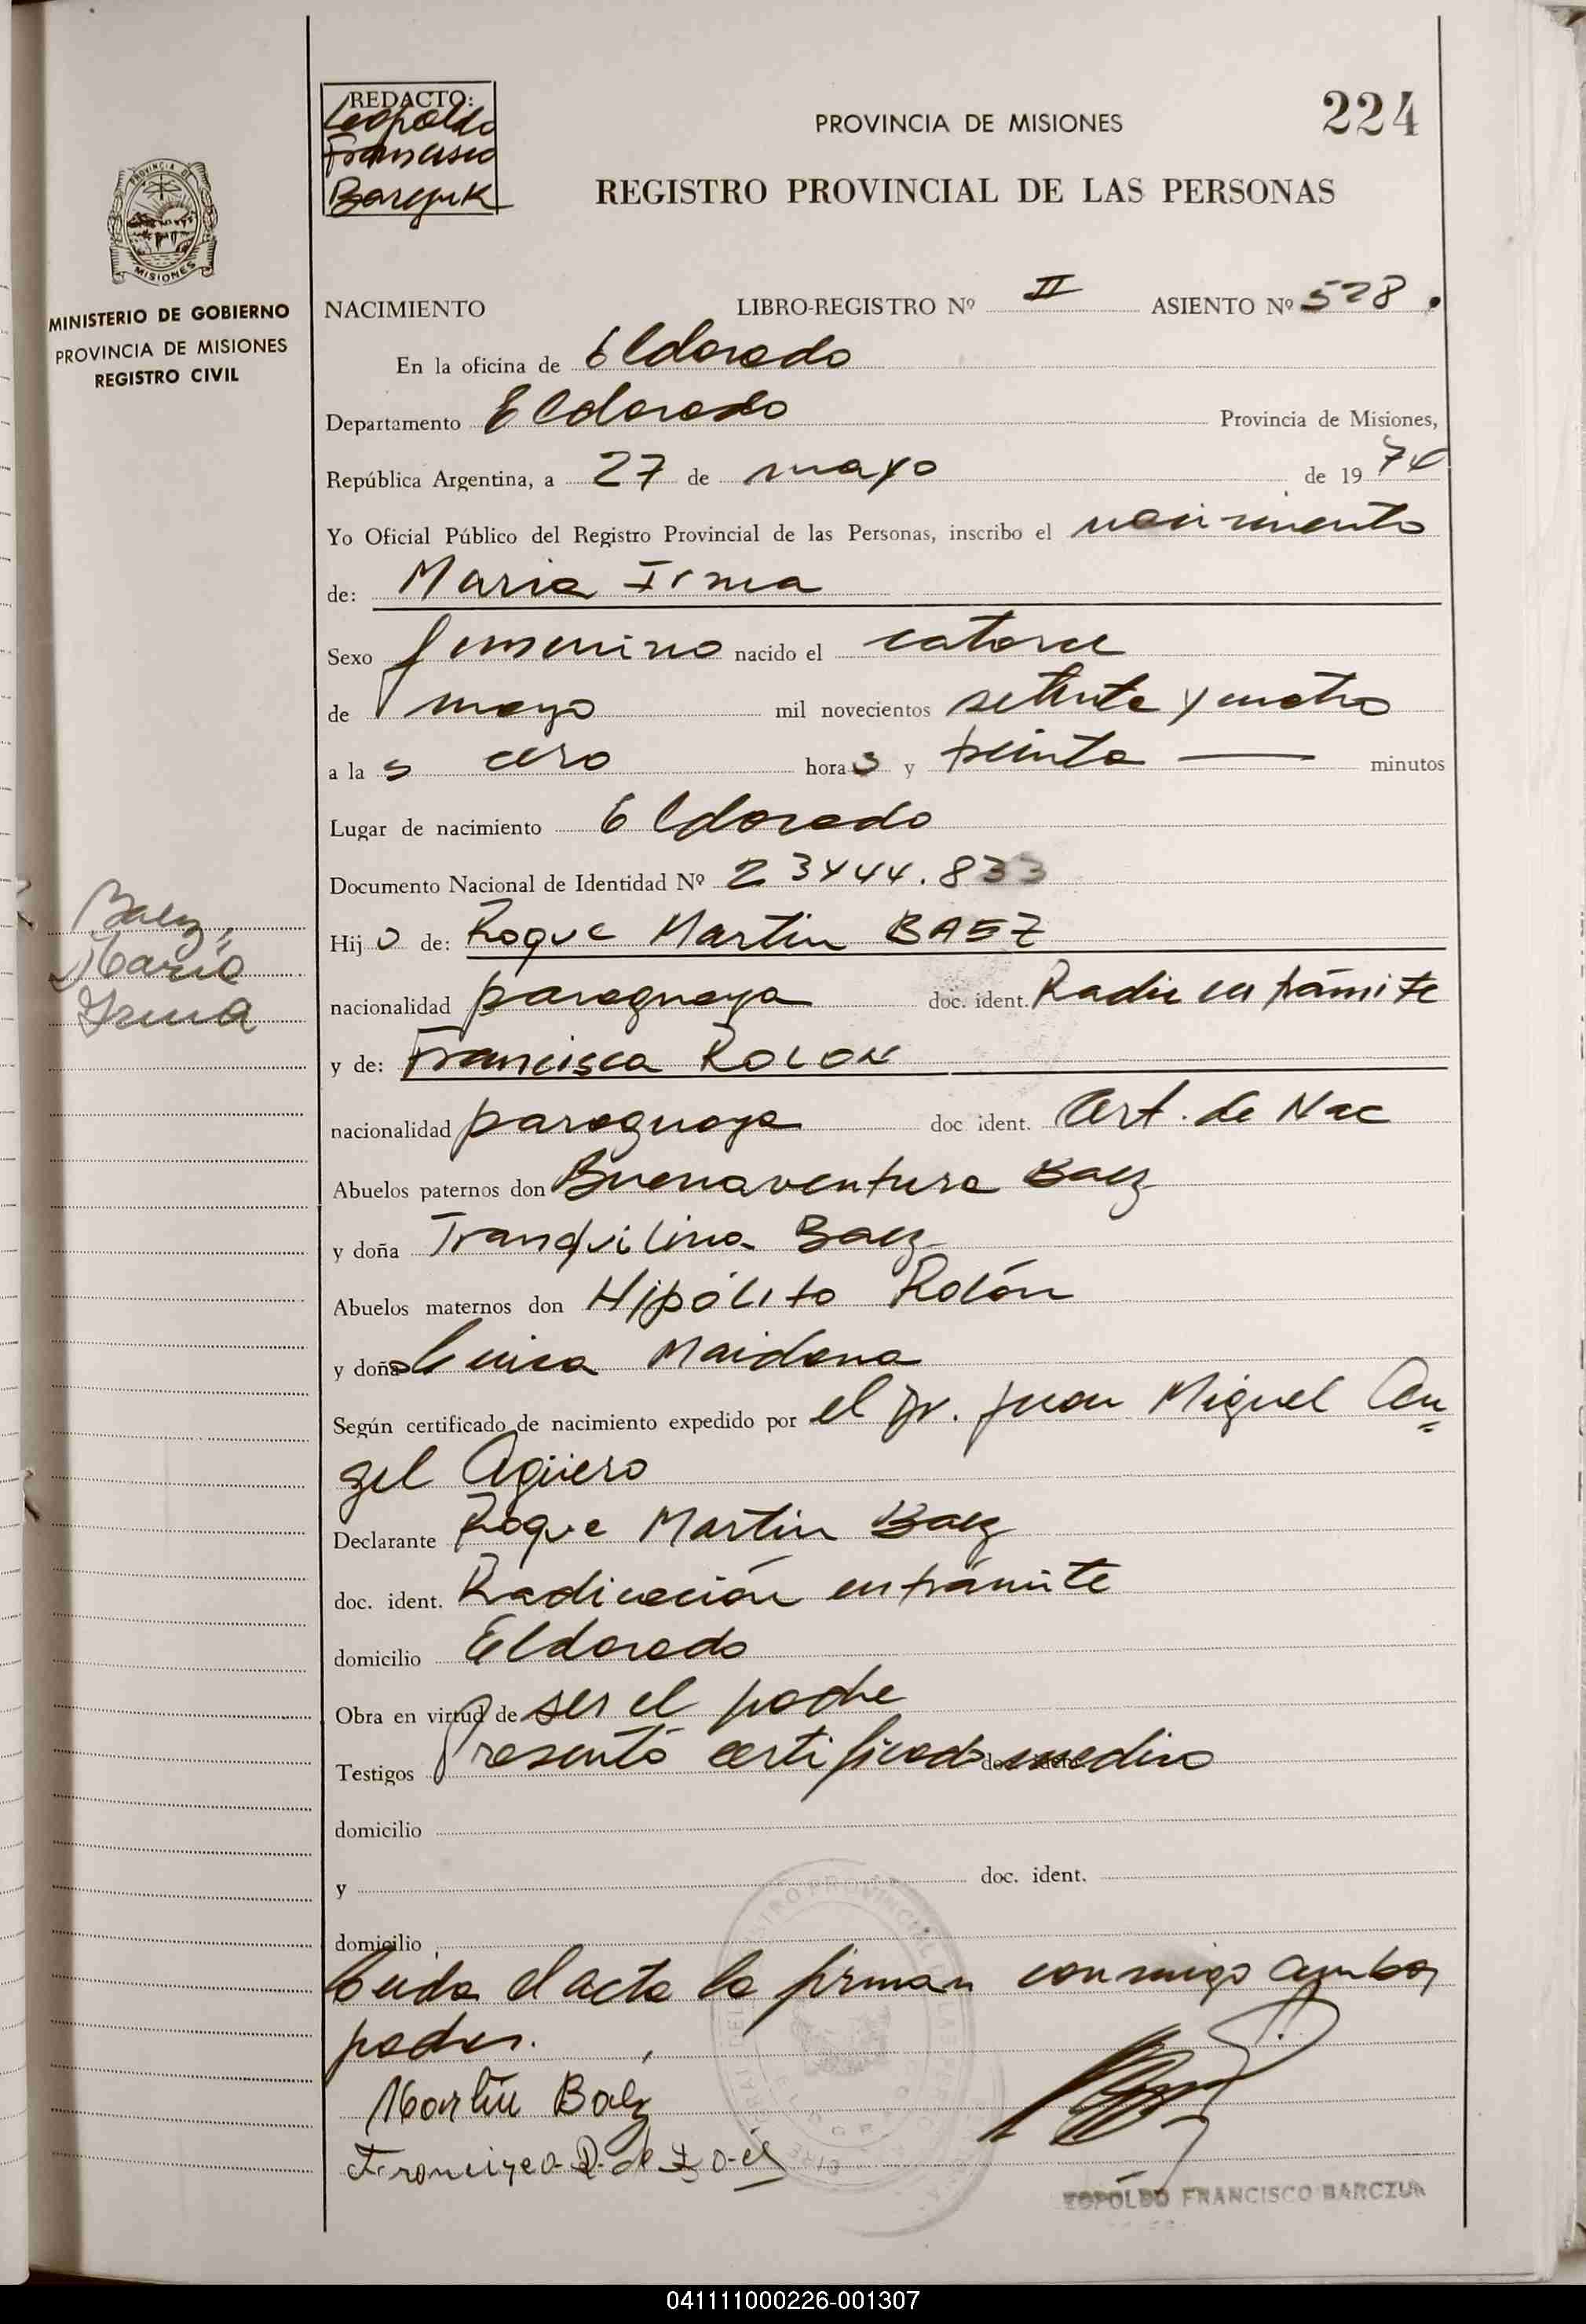 224
REDACTO:
Leopoldo
Francisco
Barczuk
PROVINCIA DE MISIONES
REGISTRO PROVINCIAL DE LAS PERSONAS
PROVINCIA DE
MISIONES
MINISTERIO DE GOBIERNO
PROVINCIA DE MISIONES
REGISTRO CIVIL
NACIMIENTO LIBRO-REGISTRO Nº II ASIENTO Nº 528.
En la oficina de Eldorado
Departamento Eldorado Provincia de Misiones,
República Argentina, a 27 de mayo de 1974
Yo Oficial Público del Registro Provincial de las Personas, inscribo el nacimiento
de: Maria Irma
Sexo femenino nacido el catorce
de mayo mil novecientos setenta y cuatro
a la s cero hora s y treinta — minutos
Lugar de nacimiento Eldorado
Documento Nacional de Identidad Nº 23444.833
Baez,
Maria
Irma
Hij o de: Roque Martin BAEZ
nacionalidad paraguaya doc. ident. Radic en trámite
y de: Francisca ROLON
nacionalidad paraguaya doc ident. Cert. de Nac
Abuelos paternos don Buenaventura Baez
y doña Tranquilina Baez
Abuelos maternos don Hipólito Rolón
y doña Maidana
Según certificado de nacimiento expedido por el Dr. Juan Miguel An=
gel Agüero
Declarante Roque Martin Baez
doc. ident. Radicación en trámite
domicilio Eldorado
Obra en virtud de ser el padre
Testigos Presentó certificado medico doc. ident.
domicilio
y doc. ident.
domicilio
Leida el acta la firman conmigo ambos
padres.
Martin Baez
Francisca R. de
LEOPOLDO FRANCISCO BARCZUK
041111000226-001307